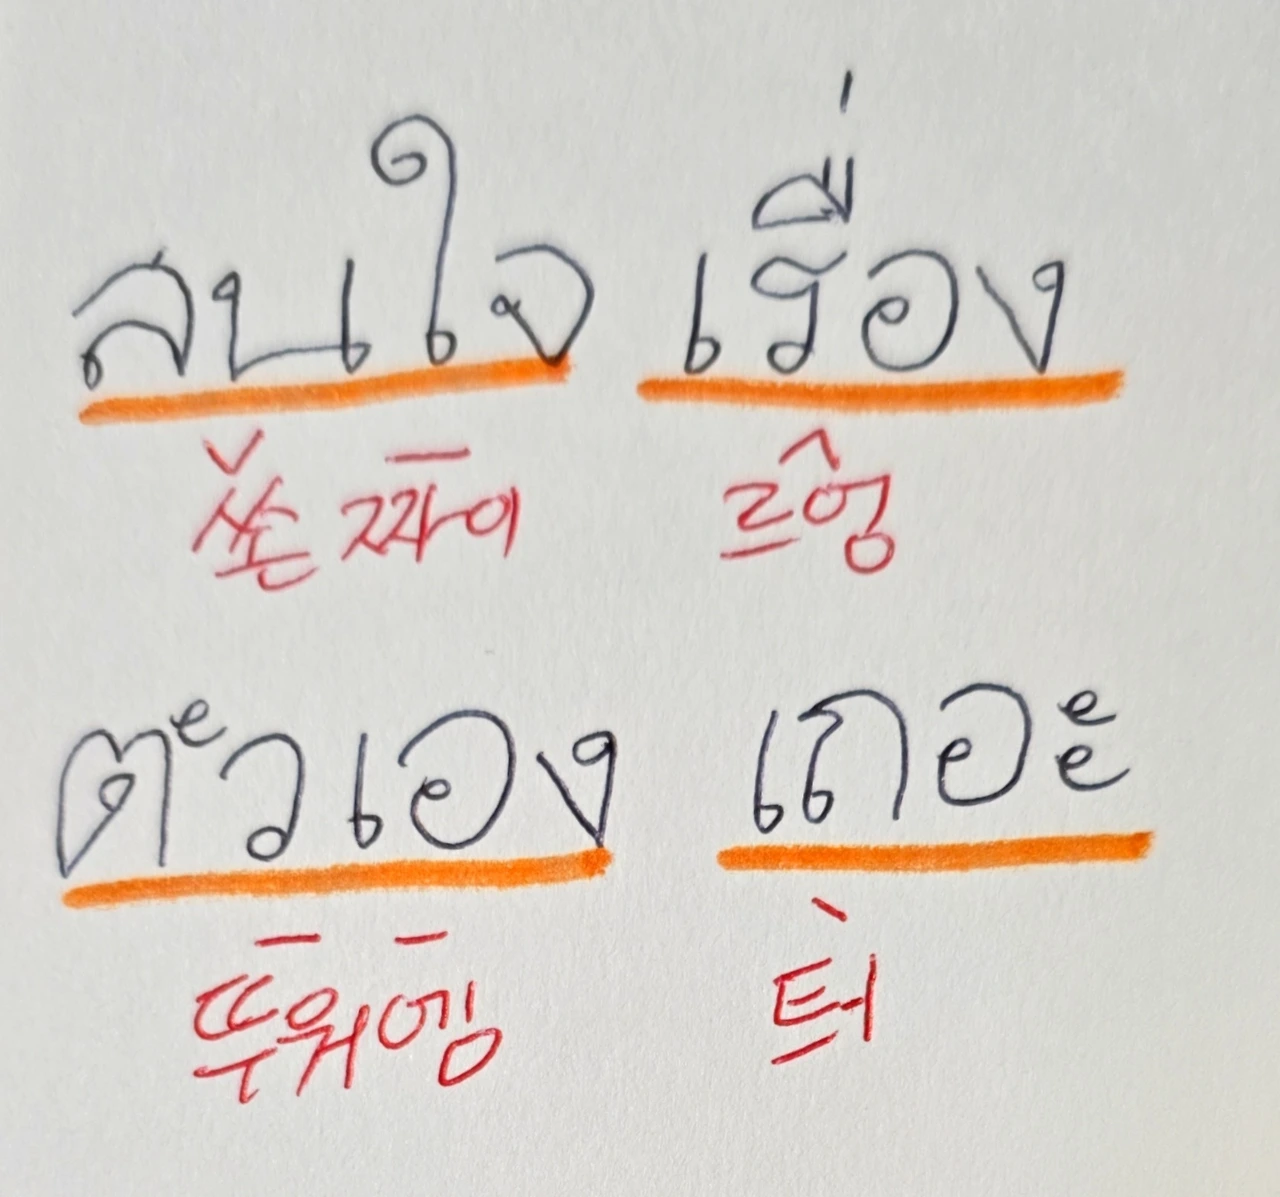 สนใจ เรื่อง
쏜 짜이 르엉
ตัวเอง เถอะ
뚜워엥 터